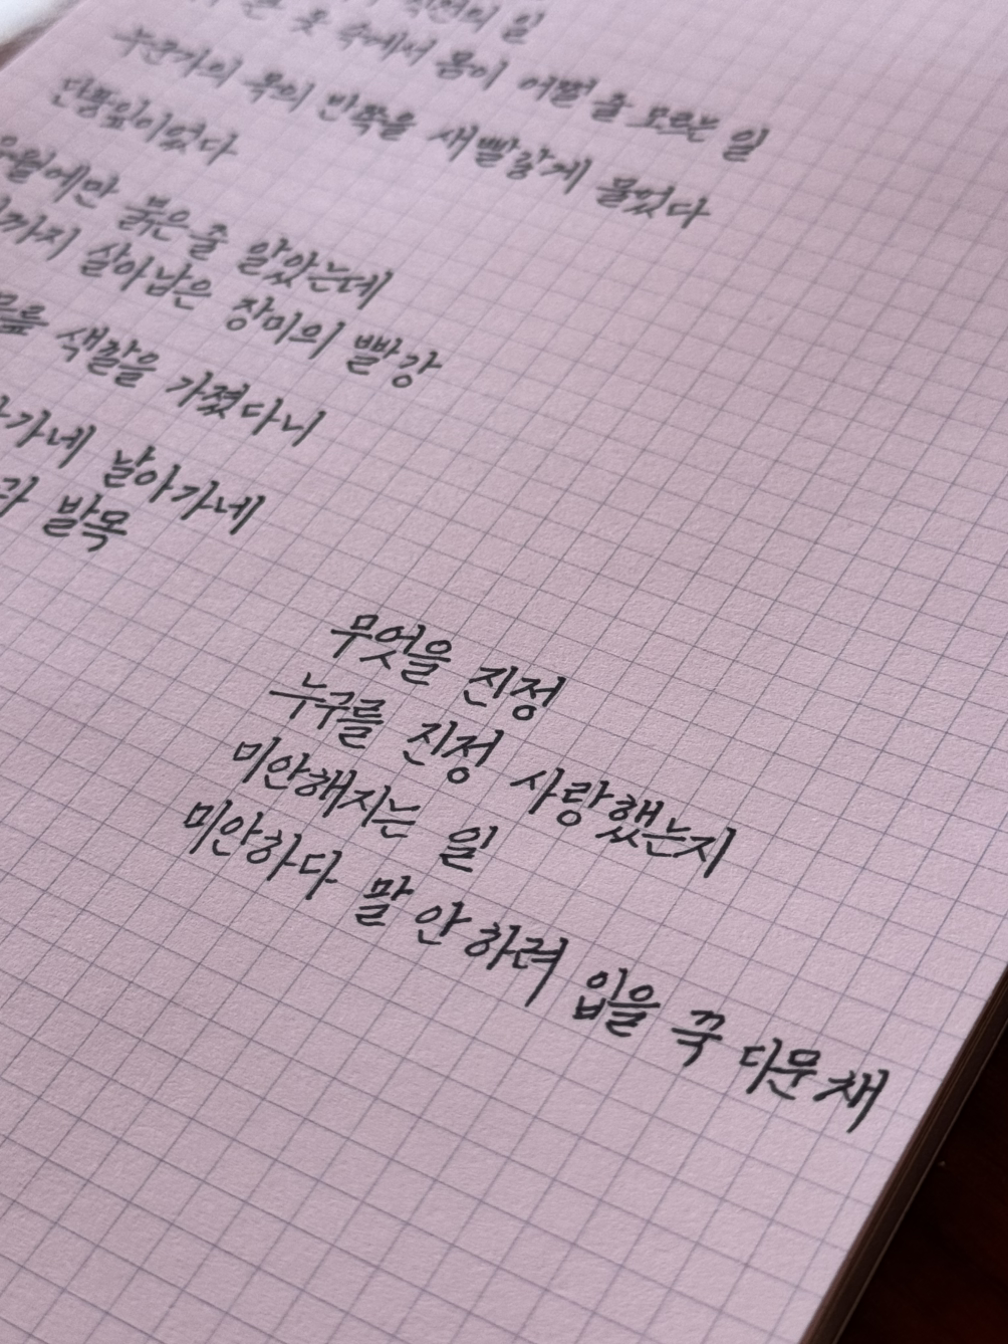 일
옷 속에서 몸이 어쩔 줄 모르는 일
누군가의 목의 반쪽을 새빨갛게 물었다
단풍잎이었다
유월에만 붉은 줄 알았는데
살아남은 장미의 빨강
색깔을 가졌다니
날아가네
발목
무엇을 진정
누구를 진정 사랑했는지
미안해지는 일
미안하다 말 안 하려 입을 꾹 다문 채